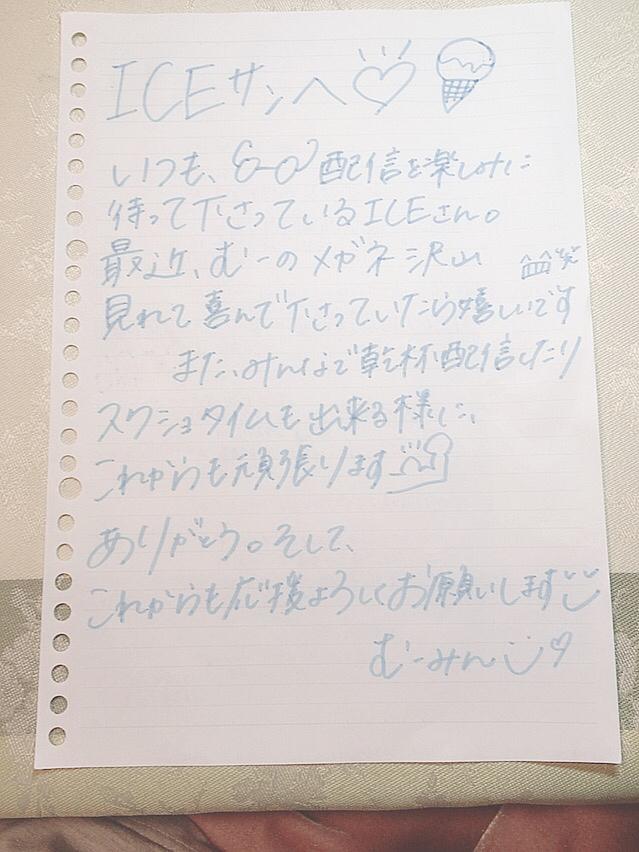 ICEサンへ
いつも、配信を楽しみに
待って下さっているICEさん。
最近、むーのメガネ沢山
見れて喜んで下さっていたら嬉しいです
また、みんなで乾杯配信したり
スクショタイムも出来る様に、
これからも頑張ります
ありがとう。そして、
これからも応援よろしくお願いします
むーみん